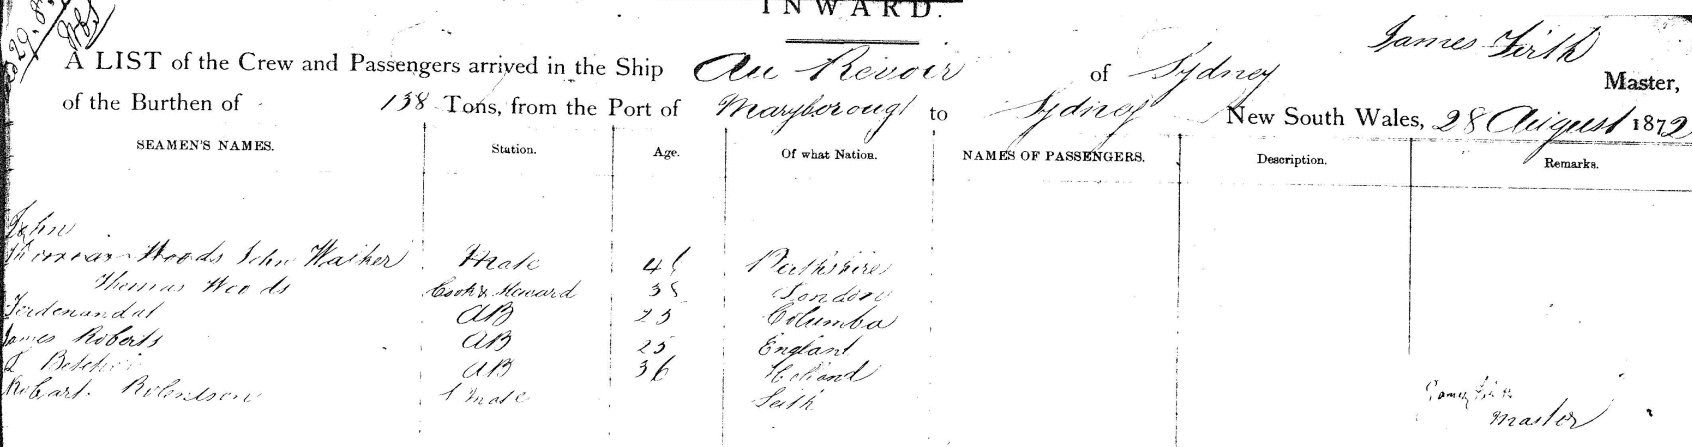 INWARD.
29.8.
A LIST of the Crew and Passengers arrived in the Ship Au Revoir of Sydney James Firth Master,
of the Burthen of 138 Tons, from the Port of Maryborough to Sydney New South Wales, 28 August 1872
SEAMEN'S NAMES. Station. Age. Of what Nation. NAMES OF PASSENGERS. Description. Remarks.
John
Woods John Walker Mate Perthshire
Thomas Woods Cook & Steward London
AB 25 Columba
James Roberts AB 25 England
AB 36 Holand
Robart. Robertson Mate Leith
James Firth
Master